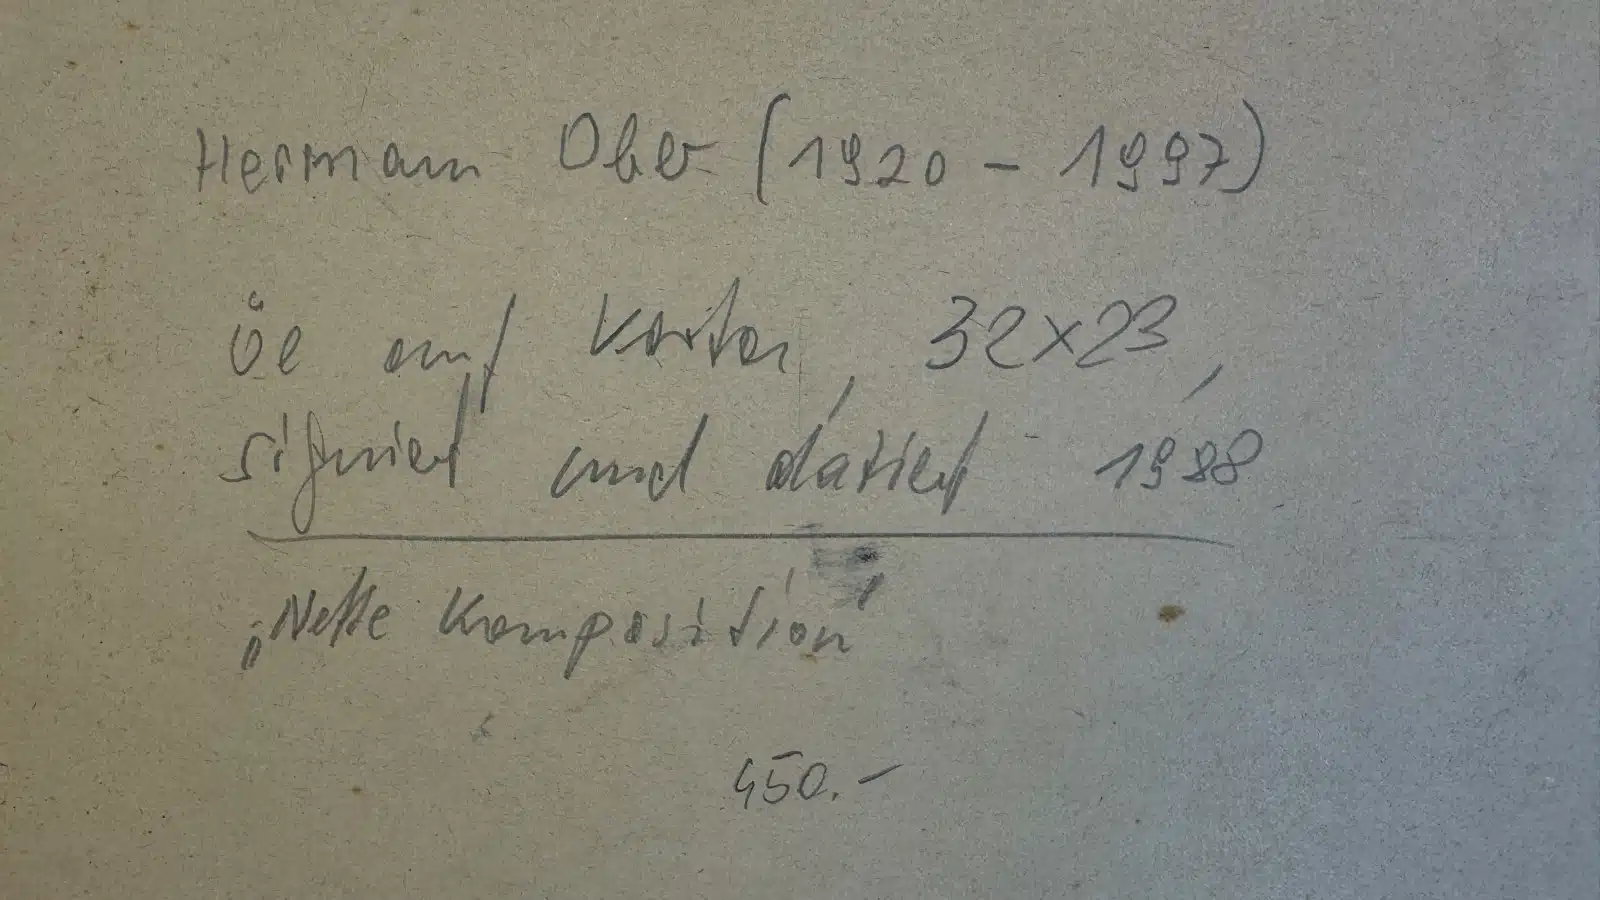 Hermann Ober (1920 - 1997)
Öl auf Karton, 32x23,
signiert und datiert 1988
„Nette Komposition"
450.-